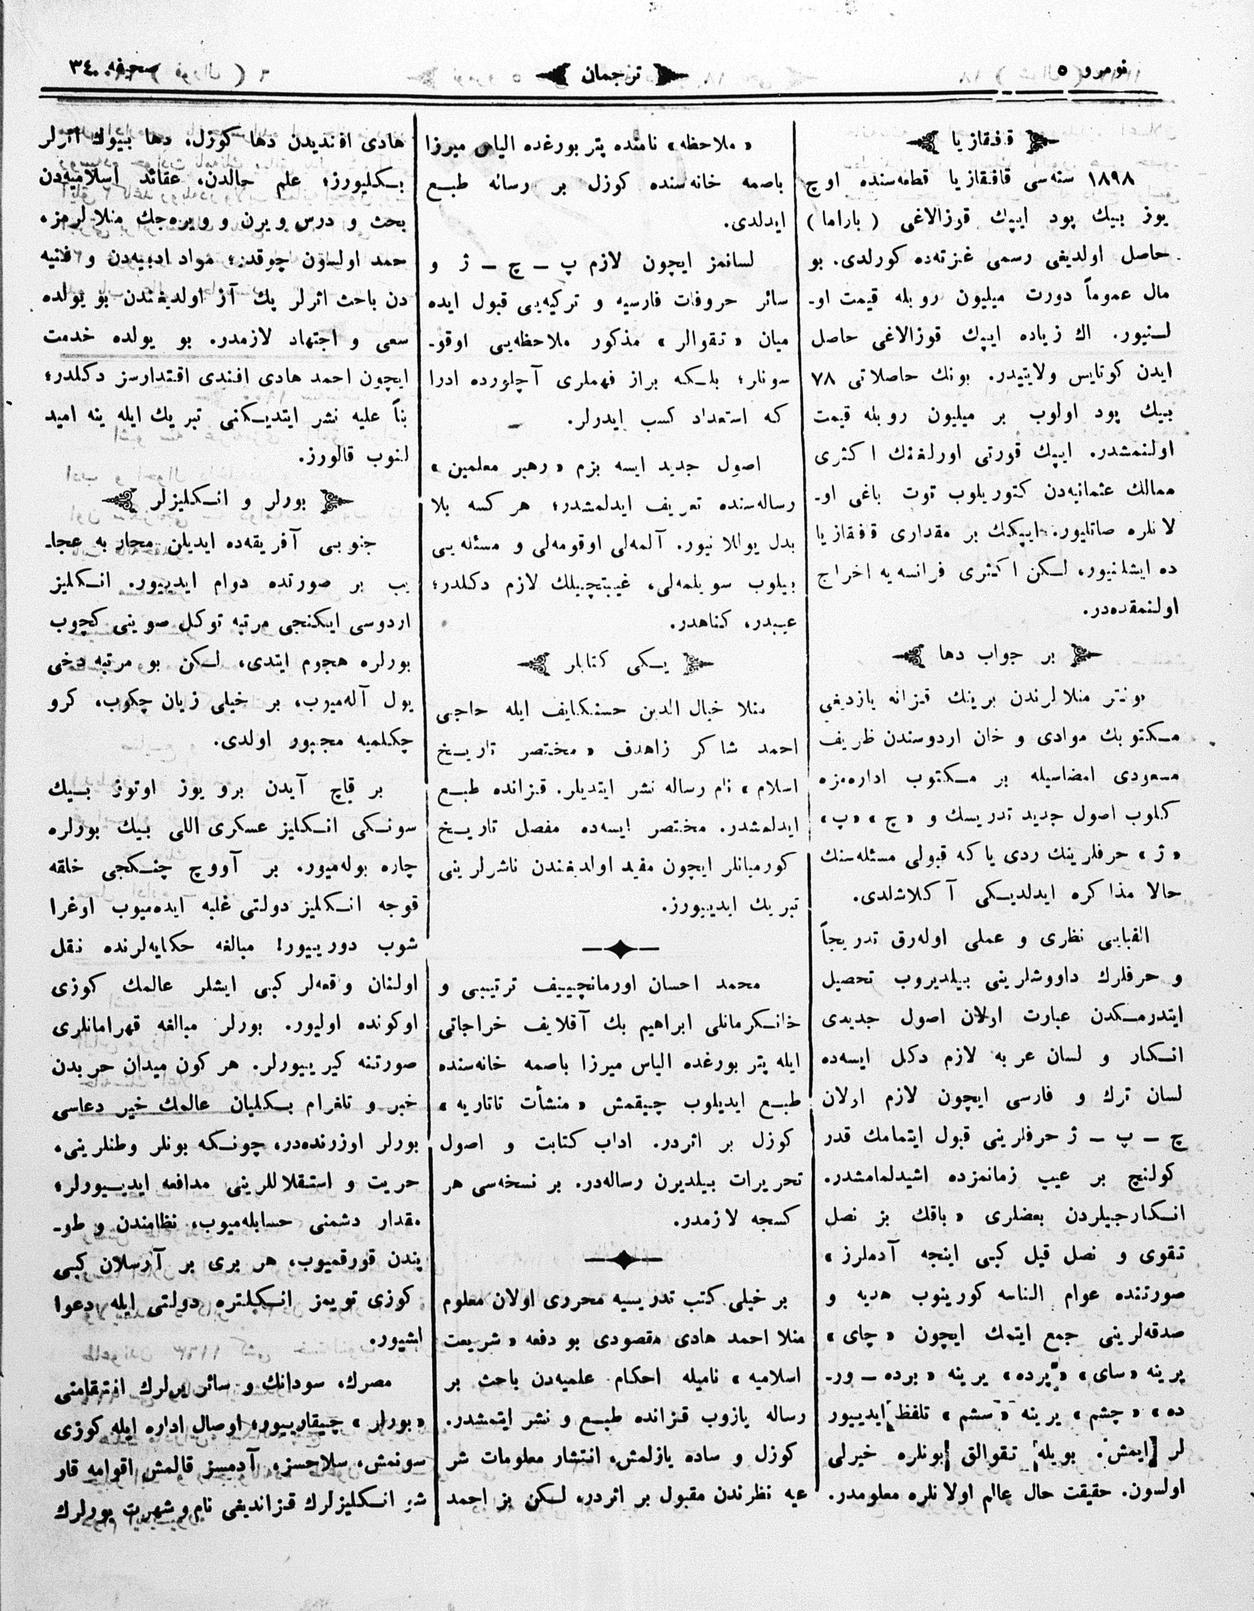 نومرو ٥
ترجمان
صحیفه ٣٤
قفقازیا
١٨٩٨ سنه‌سی قافقازیا قطعه‌سنده اوچ
یوز بیك پود ایپك قوزالاغی ( باراما )
حاصل اولدیغی رسمی غزته‌ده كورلدی. بو
مال عموماً دورت میلیون روبله قیمت او-
لـنیور. اك زیاده ایپك قوزالاغی حاصل
ایدن كوتایس ولایتیدر. بونك حاصلاتی ٧٨
بیك پود اولوب بر میلیون روبله قیمت
اولنمشدر. ایپك قورتی اورلغنك اكثری
ممالك عثمانیه‌دن كتوریلوب توت باغی او-
لانلره صاتلیور. ایپكك بر مقداری قفقازیا
ده ایشلنیور، لـكن اكثری فرانسه‌یه اخراج
اولنمقده‌در.
بر جواب دها
بونتر منلالرندن برینك قزانه یازدیغی
مـكتوبك موادی و خان اردوسندن ظریف
مسعودی امضاسیله بر مـكتوب اداره‌مزه
كلوب اصول جدید تدریسك و «چ» «پ»
«ژ» حرفلرینك ردی یا كه قبولی مسئله‌سنك
حالا مذاكره ایدلدیـكی آكلاشلدی.
الفبایی نظری و عملی اوله‌رق تدریجاً
و حرفلرك داووشلرینی بیلدیروب تحصیل
ایتدرمـكدن عبارت اولان اصول جدیدی
انـكار و لسان عربه لازم دكل ایسه‌ده
لسان ترك و فارسی ایچون لازم اولان
چ – پ – ژ حرفلرینی قبول ایتمامك قدر
كولنچ بر عیب زمانمزده اشیدلمامشدر.
انـكارجیلردن بعضلری « باقك بز نصل
تقوی و نصل قیل كبی اینجه آدملرز »
صورتنده عوام الناسه كورینوب هدیه و
صدقه‌لرینی جمع ایتمك ایچون « چای »
یرینه «سای» «پرده» یرینه «برده – ور-
ده» « چشم » یرینه «سشم» تلفظ ایدییور
لر ایمش. بویله تقوالق بونلره خیرلی
اولسون. حقیقت حال عالم اولانلره معلومدر.
« ملاحظه » نامنده پتربورغده الیاس میرزا
باصمه خانه‌سنده كوزل بر رساله طبـع
ایدلدی.
لسانمز ایچون لازم پ – چ – ژ و
سائر حروفات فارسیه و تركیه‌یی قبول ایده
میان « تقوالر » مذكور ملاحظه‌یی اوقو-
سونلر؛ بلـكه براز فهملری آچلورده ادرا
كه استعداد كسب ایدرلر.
اصول جدید ایسه بزم « رهبر معلمین »
رساله‌سنده تعریف ایدلمشدر؛ هر كسه بلا
بدل یوللانیور. آلمه‌لی اوقومه‌لی و مسئله‌یی
بیلوب سویلمه‌لی، غیبتچیلك لازم دكلدر؛
عیبدر، كناهدر.
یـكی كتابلر
منلا خیال الدین حسنـكایف ایله حاجی
احمد شاكر زاهدف « مختصر تاریـخ
اسلام » نام رساله نشر ایتدیلر. قزانده طبـع
ایدلمشدر. مختصر ایسه‌ده مفصل تاریـخ
كورمیانلر ایچون مفید اولدیغندن ناشرلرینی
تبریك ایدییورز.
محمد احسان اورمانچییف ترتیبی و
خانـكرمانلی ابراهیم بك آقلایف خراجاتی
ایله پتربورغده الیاس میرزا باصمه خانه‌سنده
طبـع ایدیلوب چیقمش « منشأت تاتاریه »
كوزل بر اثردر. اداب كتابت و اصول
تحریرات بیلدیرن رساله‌در. بر نسخه‌سی هر
كسجه لازمدر.
بر خیلی كتب تدریسیه محرری اولان معلوم
منلا احمد هادی مقصودی بو دفعه « شریعت
اسلامیه » نامیله احكام علمیه‌دن باحث بر
رساله یازوب قزانده طبـع و نشر ایتمشدر.
كوزل و ساده یازلمش، انتشار معلومات شر
عیه نظرندن مقبول بر اثردر، لـكن بز احمد
هادی افندیدن دها كوزل، دها بیوك اثرلر
بـكلیورز؛ علم حالدن، عقائد اسلامیه‌دن
بحث و درس ویرن و ویره‌جك منلالرمز،
حمد اولسون چوقدر؛ مواد ادبیه‌دن و فنیه
دن باحث اثرلر پك آز اولدیغندن بو یولده
سعی و اجتهاد لازمدر. بو یولده خدمت
ایچون احمد هادی افندی اقتدارسز دكلدر؛
بناً علیه نشر ایتدیـكنی تبریك ایله ینه امید
لنوب قالورز.
بورلر و انـكلیزلر
جنوبی آفریقه‌ده ایدیلن محاربه عجا-
یب بر صورتده دوام ایدییور. انـكلیز
اردوسی ایكنجی مرتبه توكل صوینی كچوب
بورلره هجوم ایتدی، لـكن بو مرتبه دخی
یول آله‌میوب، بر خیلی زیان چكوب، كرو
چكلمیه مجبور اولدی.
بر قاچ آیدن برو یوز اوتوز بـیك
سونـكی انـكلیز عسكری اللی بیك بورلره
چاره بوله‌میور. بر آووچ چفـكجی خلقه
قوجه انـكلیز دولتی غلبه ایده‌میوب اوغرا
شوب دورییور! مبالغه حكایه‌لرنده نقل
اولنان وقعه‌لر كبی ایشلر عالمك كوزی
اوكونده اولیور. بورلر مبالغه قهرامانلری
صورتنه كیرییورلر. هر كون میدان حربدن
خبر و تلغرام بـكلیان عالمك خیر دعاسی
بورلر اوزرنده‌در، چونـكه بونلر وطنلرینی،
حریت و استقلاللرینی مدافعه ایدیـیورلر،
مقدار دشمنی حسابله‌میوب، نظامندن و طو-
پندن قورقمیوب، هر بری بر آرسلان كبی
كوزی تویمز انـكیلتره دولتی ایله دعوا
ایشیور.
مصرك، سودانك و سائر یرلرك انتقامنی
« بورلر » چیقارییور، اوصال اداره ایله كوزی
سونمش، سلاحسز، آدمسز قالمش اقوامه قار
شی انـكلیزلرك قزاندیغی نام و شهرت بورلرك